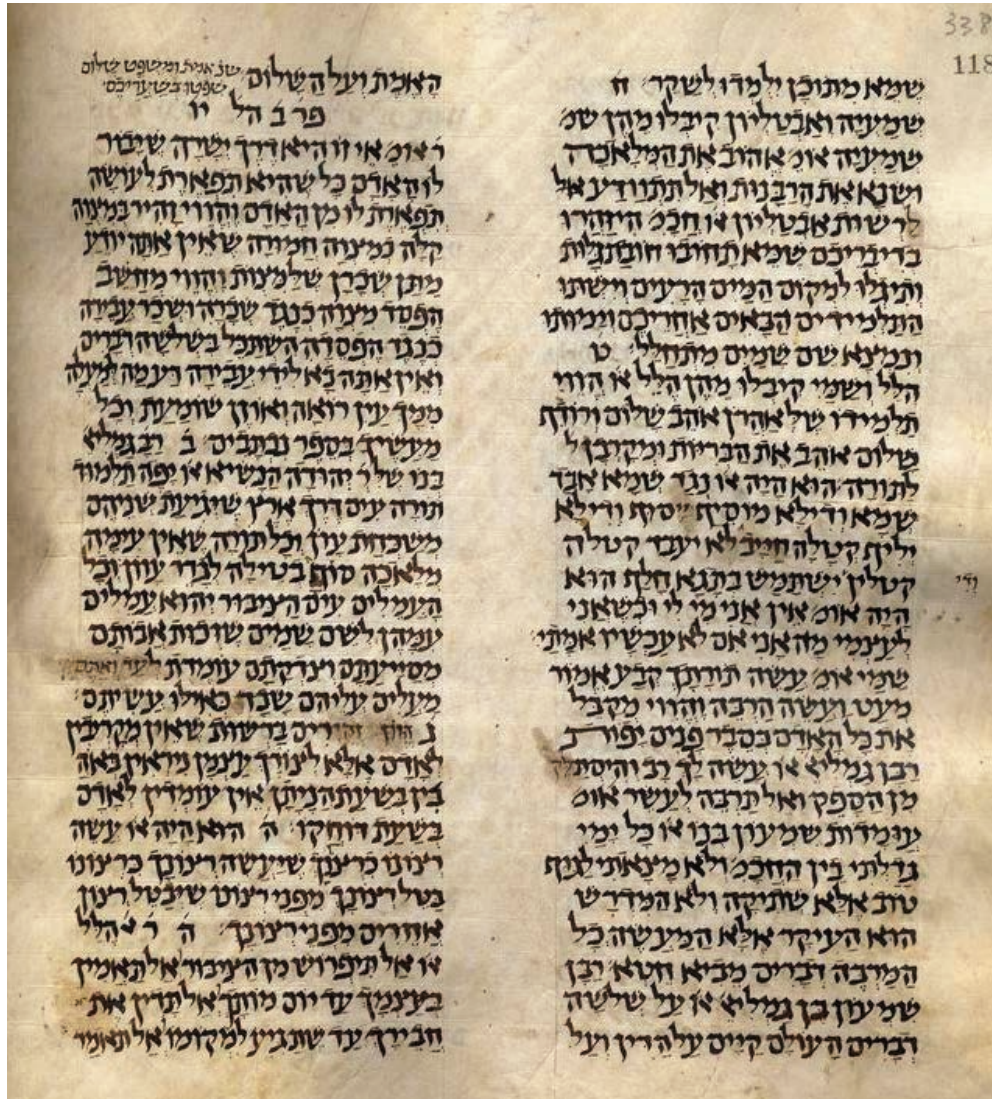 338
118
שמא מתוכן ילמדו לשקר ח
שמעיה ואבטליון קיבלו מהן שמ
שמעיה אומ׳ אהוב את המלאכה
ושנא את הרבנות ואל תתוודע אל
לרשות אבטליון או׳ חכמ׳ היזהרו
בדיבריכם שמא תחובו חובת גלות
ותיגלו למקום המים הרעים וישתו
התלמידים הבאים אחריכם וימותו
ונמצא שם שמים מתחלל ט
הלל ושמי קיבלו מהן הלל או׳ הווי
תלמידו שלאהרן אוהב שלום ורודף
שלום אוהב את הבריות ומקרבן ל
לתורה הוא היה או׳ נגד שמא אבד
שמא ודילא מוסיף יסוף ודילא
יליף קטלה חייב לא יעבד קטלה
קטלין ישתמש בתגא חלף הוא
ודי
היה אומ׳ אין אני מי לי וכשאני
לעצמי מה אני אם לא עכשיו אמתי
שמי אומ׳ עשה תורתך קבע אמור
מעט ועשה הרבה והווי מקבל
את כל האדם בסבר פנים יפות
רבן גמליא׳ או׳ עשה לך רב והיסתלק
מן הספק ואל תרבה לעשר אומ׳
עומדות שמעון בנו או׳ כל ימי
גדלתי בין החכמ׳ ולא מצאתי לגוף
טוב אלא שתיקה ולא המדרש
הוא העיקר אלא המעשה כל
המרבה דברים מביא חטא רבן
שמעון בן גמליא׳ או׳ על שלשה
דברים העולם קיים על הדין ועל
האמת ועל השלום שנ׳ אמת ומשפט שלום
שפטו בשעריכם
פר׳ ב הל׳ יו
ר׳ אומ׳ אי זו היא דרך ישרה שיבור
לו האדם כל שהיא תפארת לעושה
תפארת לו מן האדם והווי זהיר במצוה
קלה כמצוה חמורה שאין אתה יודע
מתן שכרן שלמצות והווי מחשב
הפסד מצוה כנגד שכרה ושכר עבירה
כנגד הפסדה השתכל בשלשה דברים
ואין אתה בא לידי עבירה דע מה למעלה
ממך עין רואה ואוזן שומעת וכל
מעשיך בספר נכתבים ב רבן גמליא׳
בנו שלר׳ יהודה הנשיא או׳ יפה תלמוד
תורה עים דרך ארץ שיגיעת שניהם
משכחת עון וכל תורה שאין עימה
מלאכה סוף בטילה לגרר עוון וכל
העמלים עים הציבור יהוא עמלים
עמהן לשם שמים שזכות אבותם
מסייעתם וצדקתם עומדת לעד ואתם
מעלים עליהם שכר כאילו עשיתם
ג הוון זהירים ברשות שאין מקרבין
לאדם אלא לצורך עצמן ניראין כאה
בין בשעת הניתן אין עומדין לאדם
בשעת דוחקו ה הוא היה או׳ עשה
רצונו כרצונך שיעשה רצונך כרצונו
בטל רצונך מפני רצונו שיבטל רצון
אחרים מפני רצונך ה ר׳ הלל
או׳ אל תיפרוש מן הציבור אל תאמין
בעצמך עד יום מותך אל תדין את
חבירך עד שתגיע למקומו אל תאמר